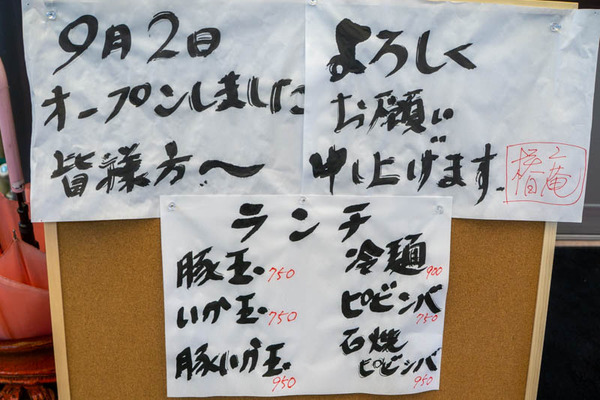 9月2日
オープンしました
皆様方へ
よろしく
お願い
申し上げます。
庵
ランチ
豚玉 750
いか玉 750
豚いか玉 950
冷麺 900
ピビンバ 750
石焼
ピビンバ 950